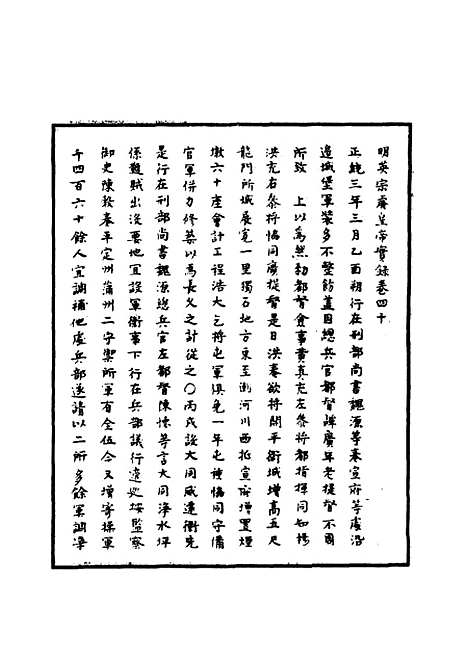 明英宗睿皇帝實錄卷四十
正統三年三月乙酉朔行在刑部尚書魏源等奏宣府等處沿
邊城堡軍裝多不整飭蓋因總兵官都督譚廣年老提督不周
所致　上以為然勑都督僉事黃真充左叅將都指揮同知楊
洪充右叅將協同廣提督是日洪奏欲將開平衛城增高五尺
龍門所城展寬一里獨石地方東至潮河川西抵宣府增置煙
墩六十座會計工程浩大乞將屯軍俱免一年屯種協同守備
官軍併力修築以為長久之計從之〇丙戌設大同威遠衛先
是行在刑部尚書魏源總兵官左都督陳懷等言大同淨水坪
係難賊出沒要地宜設軍衛事下行在兵部議行遼東按監察
御史陳穀奏平定州蒲州二守禦所軍有全伍今又增寄操軍
千四百六十餘人宜調補他處兵部遂請以二所多餘軍調凖